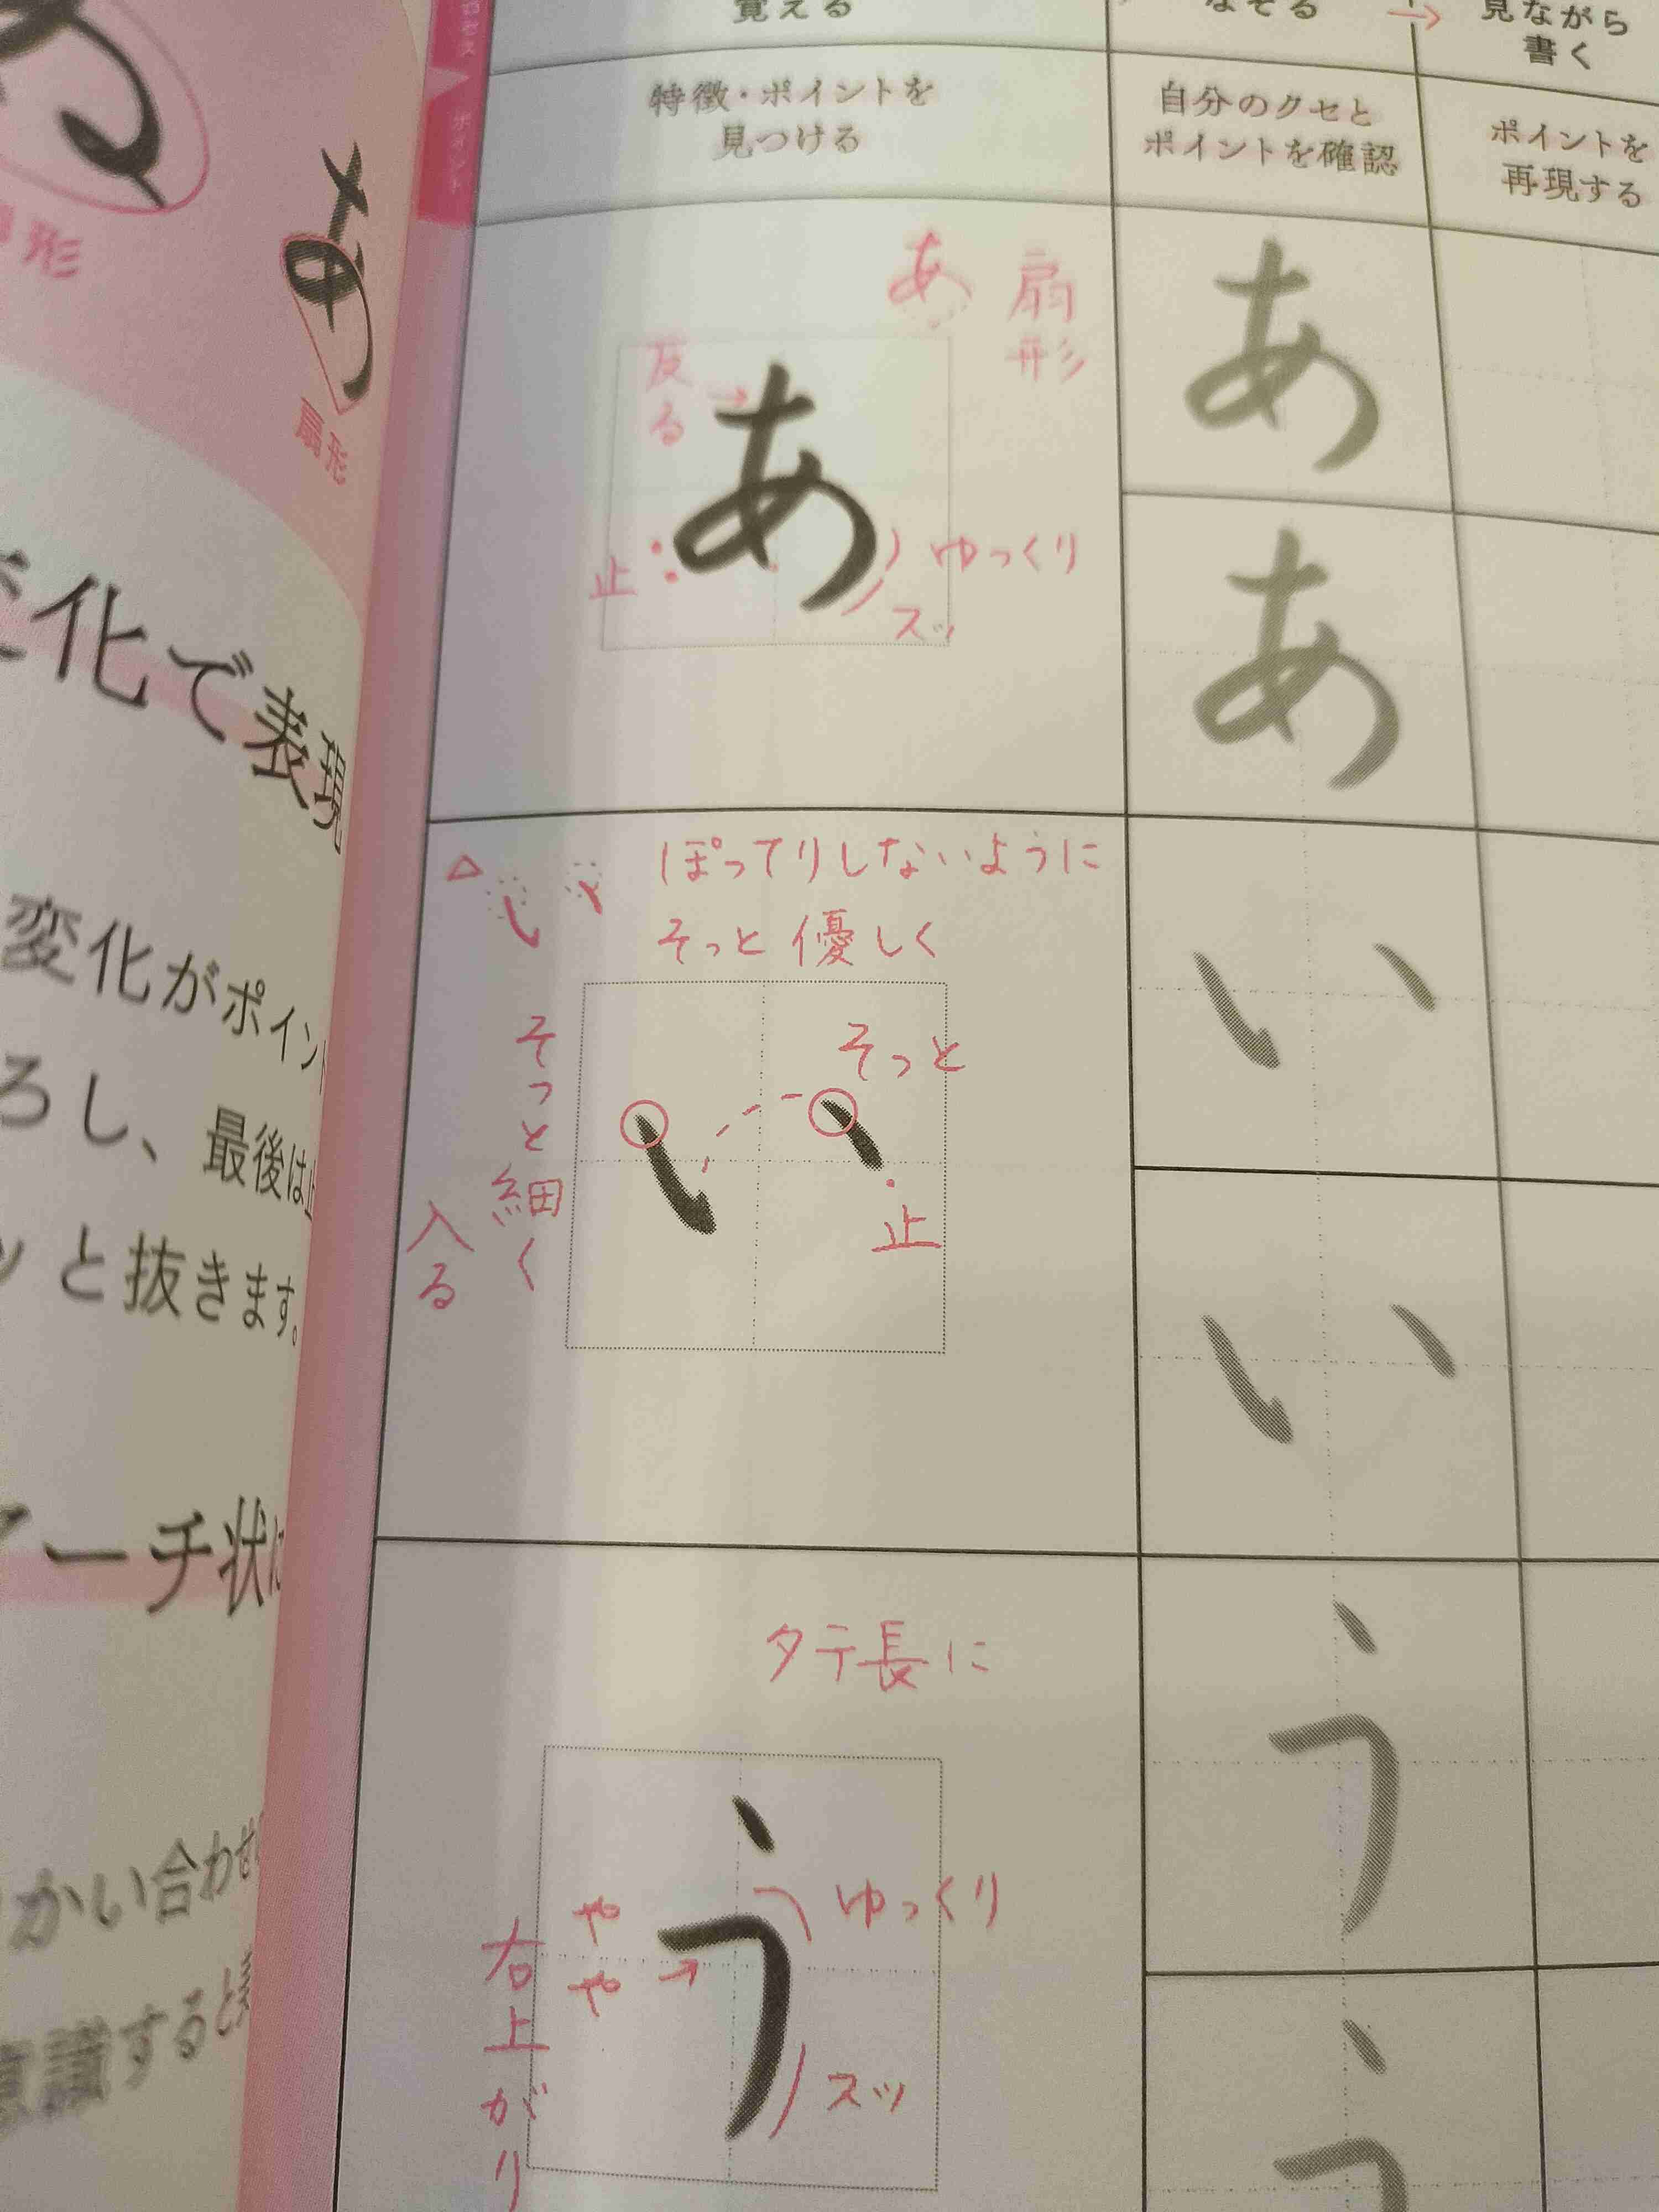 覚える
なぞる
→
見ながら
書く
特徴・ポイントを
見つける
自分のクセと
ポイントを確認
ポイントを
再現する
あ
扇形
反る
→
あ
止
ゆっくり
スッ
あ
あ
△
ぽってりしないように
そっと優しく
そっと細く
入る
そっと
い
止
い
い
タテ長に
う
ゆっくり
やや
→
右上がり
スッ
う
う
ポイント
形
あ
扇形
化で表現
変化がポイン
ろし、最後は
ッと抜きます。
ーチ状に
かい合わせ
意識すると